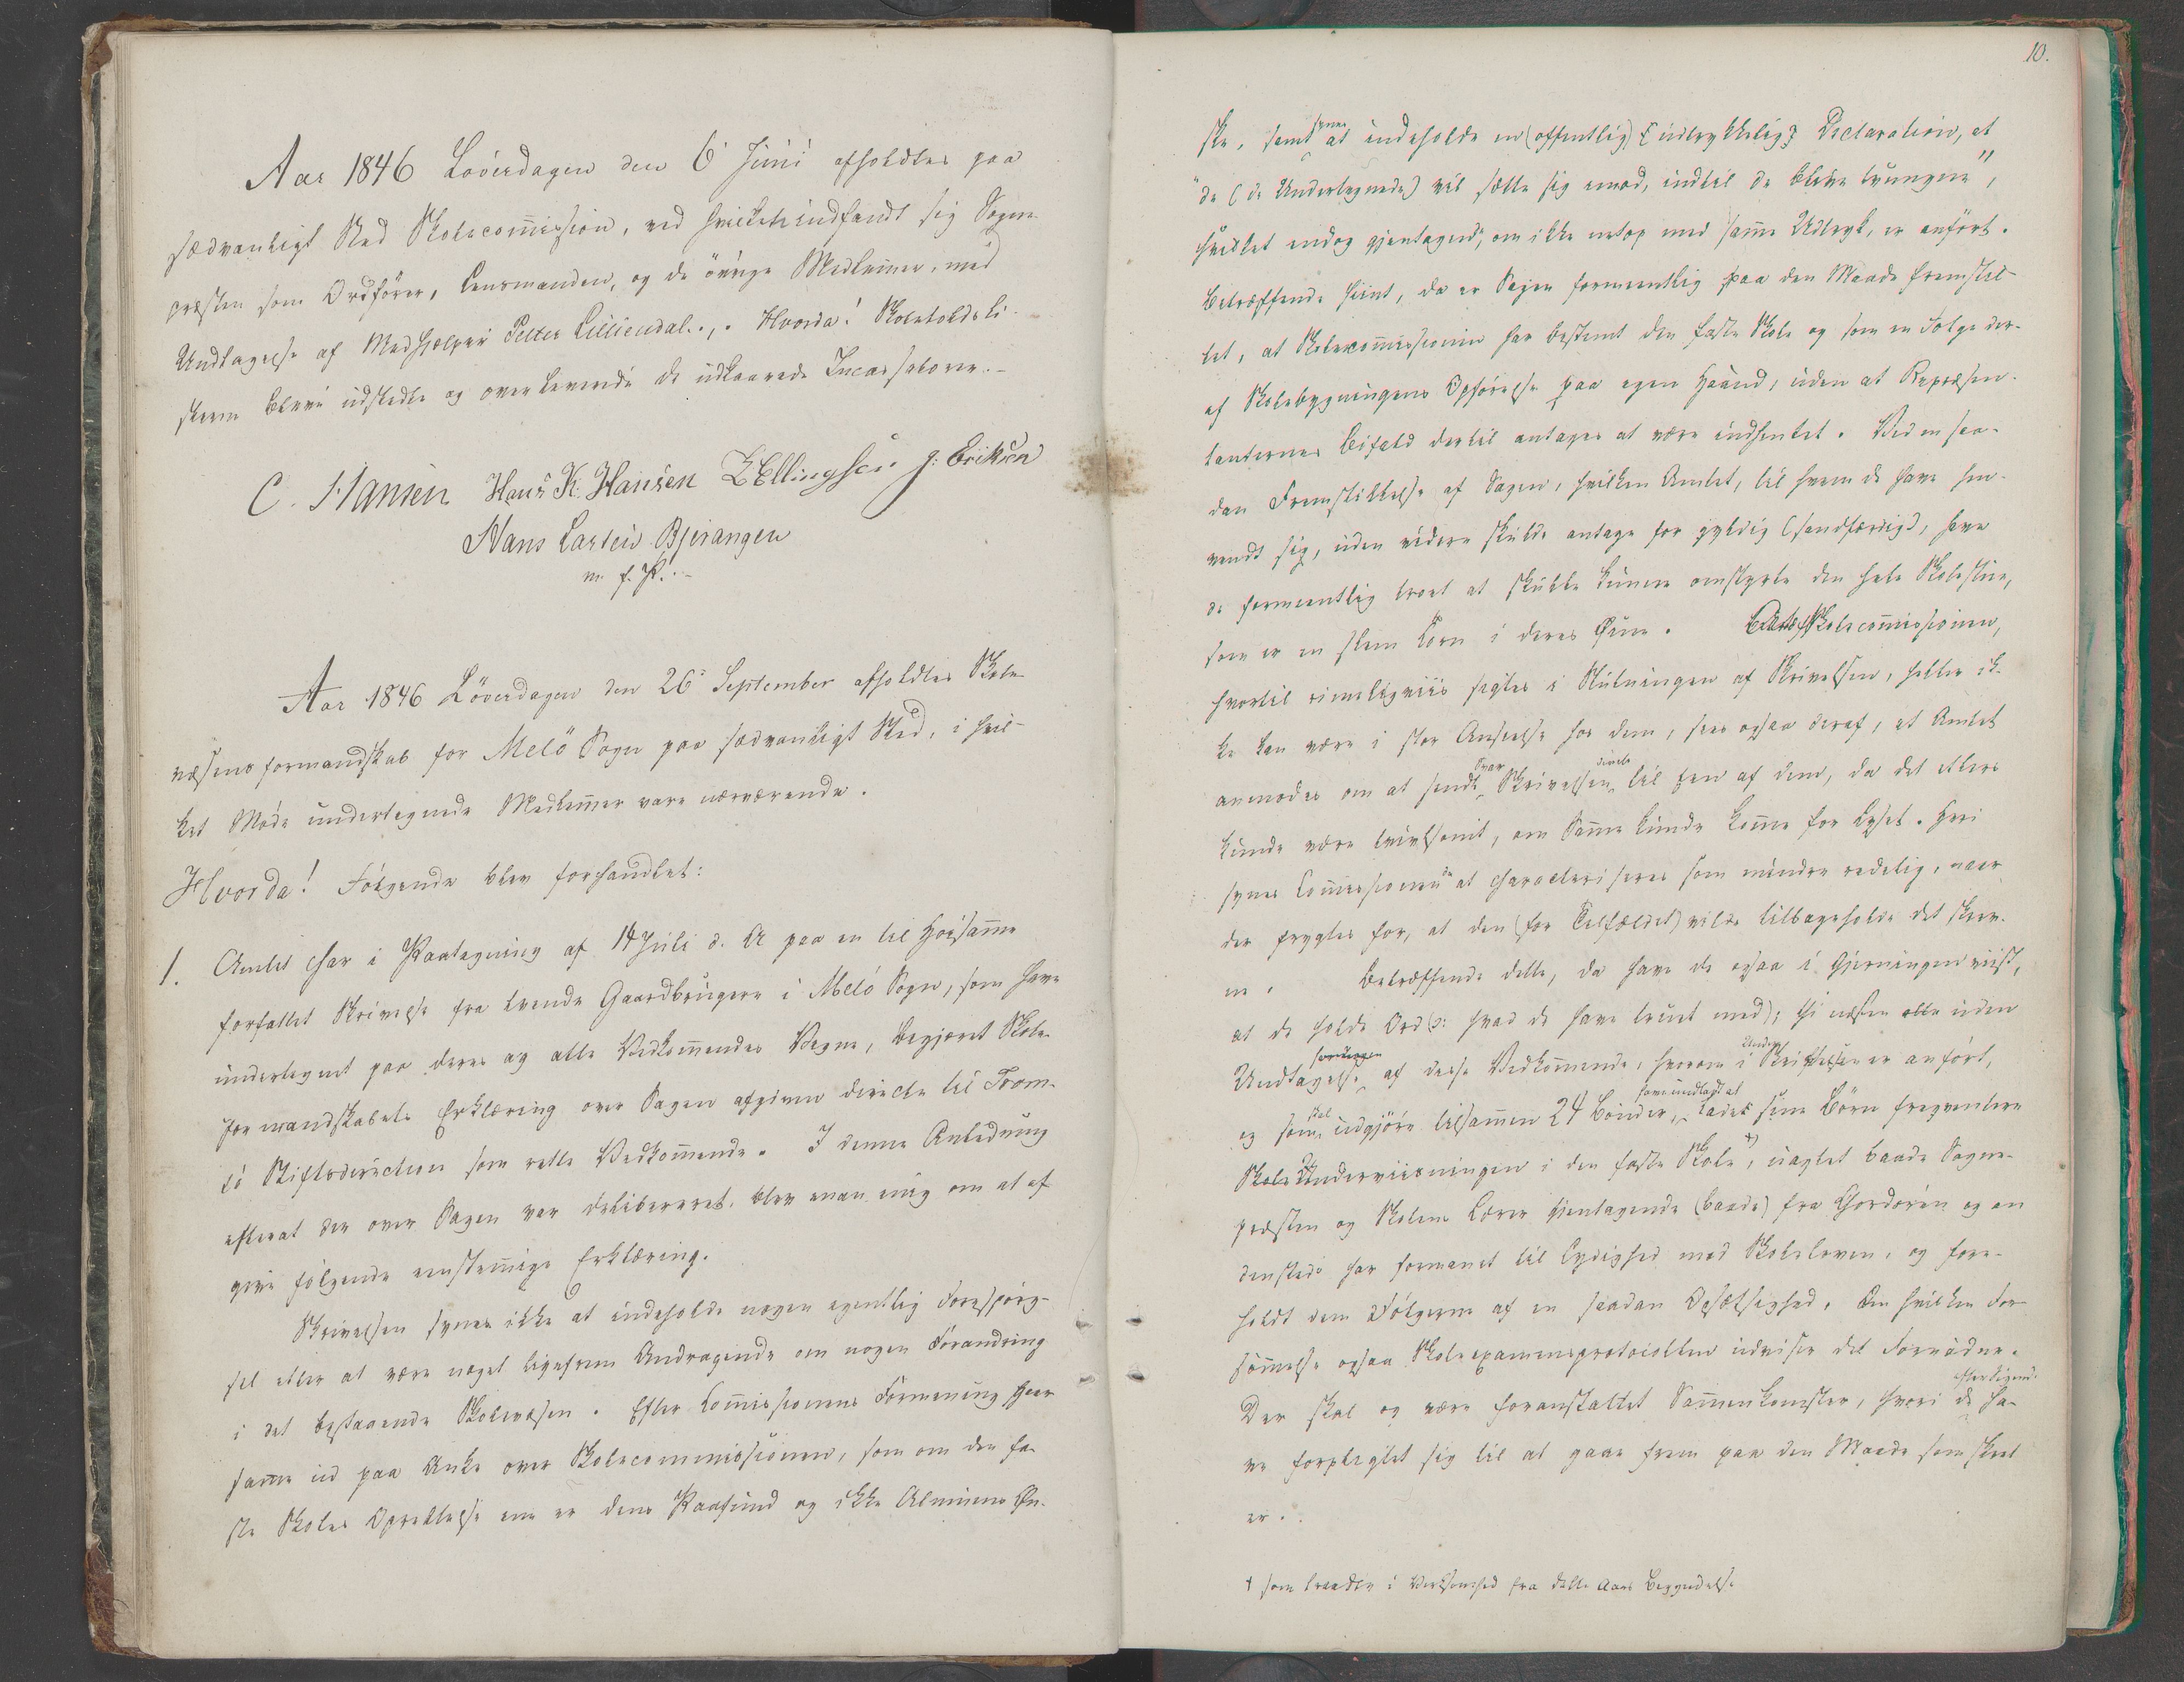 Aar 1846 Löverdagen den 6' Juni afholdtes paa
sædvanligt Sted Skolecom̄ission, ved hvilket indfandt sig Sogne-
præsten som Ordförer, Lensmanden, og de övrige Medlem̄er, med
Undtagelse af Medhjelper Petter Lilliendal.,. Hvorda! Skoletoldsli-
sterne bleve udstedte og overleverede de udkaarede Incassatorer.-
C. Hansen Hans K: Hansen E Ellingsen J: Eriksen
Hans Larsen Bjerangen
m. f. P...
Aar 1846 Löverdagen den 26' September afholdtes Skole-
væsensformandskab for Melö Sogn paa sædvanligt Sted, i hvil-
ket Möde undertegnede Medlem̄er vare nærværende.
Hvorda! Fölgende blev forhandlet:
1. Amtet har i Paategning af 14 Juli d. A paa en til Höisam̄e
forfattet Skrivelse fra tvende Gaardbrugere i Melö Sogn, som have
undertegnet paa deres og alle Vedkom̄endes Vegne, begjæret Skole-
formandskabets Erklæring over Sagen afgiven directe til Trom-
sö Stiftsdirection som rette Vedkom̄ende. I denne Anledning
efterat der over Sagen var delibereret, blev man enig om at af-
give fölgende eenstem̄ige Erklæring.
Skrivelsen synes ikke at indeholde nogen egentlig Forespörg-
sel eller at være noget ligefrem Andragende om nogen Forandring
i det bestaaende Skolevæsen. Efter Com̄issionens Formening gaar
sam̄e ud paa Anke over Skolecommissionen, som om den fa-
ste Skoles Oprettelse ene er dens Paafund og ikke Almuens Ön-
10.
ske, samt synes at indeholde en (offentlig) [udtrykkelig] Declaration, at
"de (de Undertegnede) vil sætte sig imod, indtil de blive tvungne",
hvilket endog gjentagende, om ikke netop med sam̄e Udtryk, er anfört.
Betræffende hiint, da er Sagen formeentlig paa den Maade fremstil-
let, at Skolecom̄issionen har bestemt den faste Skole og som en Fölge der-
af Skolebygningens Opförelse paa egen Haand, uden at Repræsen-
tanternes Bifald dertil antages at være indhentet. Ved en saa-
dan Fremstillelse af Sagen, hvilken Amtet, til hvem de have hen-
vendt sig, uden videre skulde antage for gyldig (sandfærdig), have
de formeentlig troet at skulle kunne omstyrte den hele Skolestue,
som er en slem Torn i deres Öine. Skolecom̄issionen,
hvortil rimeligviis sigtes i Slutningen af Skrivelsen, heller ik-
ke kan være i stor Anseelse hos dem, sees ogsaa deraf, at Amtet
anmodes om at sende Svar Skrivelsen directe til Een af dem, da det ellers
kunde være tvivlsomt, om Sam̄e kunde kom̄e for Lyset. Heri
synes Com̄issionen at characteriseres som mindre redelig, naar
der frygtes for, at den (for Tilfældet) vilde tilbageholde det skrev-
ne. Betræffende dette, da have de ogsaa i Gjerningen viist,
at de holde Ord (ɔ: hvad de have truet med); thi næsten alle uden
Undtagelse af disse Vedkom̄ende, hvorom i Skrivelsen er anfört,
og som skal udgjöre tilsam̄en 24 Bönder, have undladt at lade sine Börn freqventere
Skoleunderviisningen i den faste Skole †), uagtet baade Sogne-
præsten og Skolens Lærer gjentagende (baade) fra Chordören og an-
densteds har formanet til Lydighed mod Skoleloven, og fore-
holdt dem Fölgerne af en saadan Opsætsighed. Om hvilken For-
söm̄else ogsaa Skoleexamensprotocollen udviser det Fornödne.
Der skal og være foranstaltet Sam̄enkomster, hvori de efter Sigende ha-
ve forpligtet sig til at gaae frem paa den Maade som skeet
er..
† som traadte i Virksomhed fra dette Aars Begyndelse